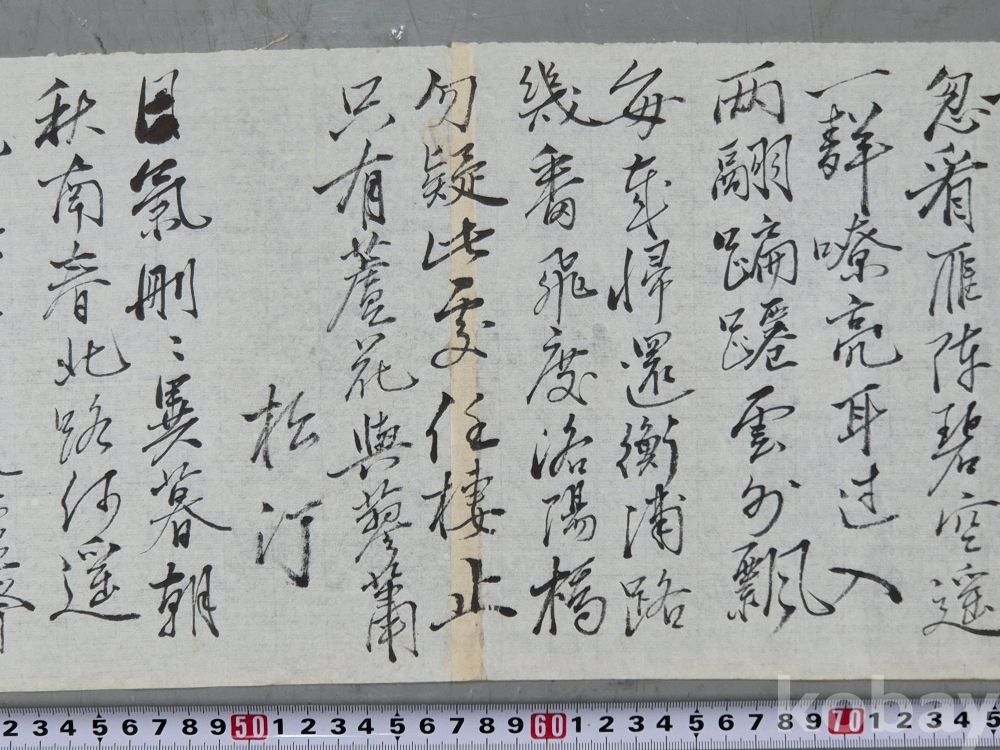 忽看雁陣碧空遥
一群嘹亮耳过入
両翮蹁躚雲外飄
每年歸還衡浦路
幾番飛度洛陽橋
勿疑此處任棲止
只有蘆花與蓼蕭
松汀
日氣刪〻異暮朝
秋南春北路何遥
2 3 4 5 6 7 8 9 50 1 2 3 4 5 6 7 8 9 60 1 2 3 4 5 6 7 8 9 70 1 2 3 4 5
kobay